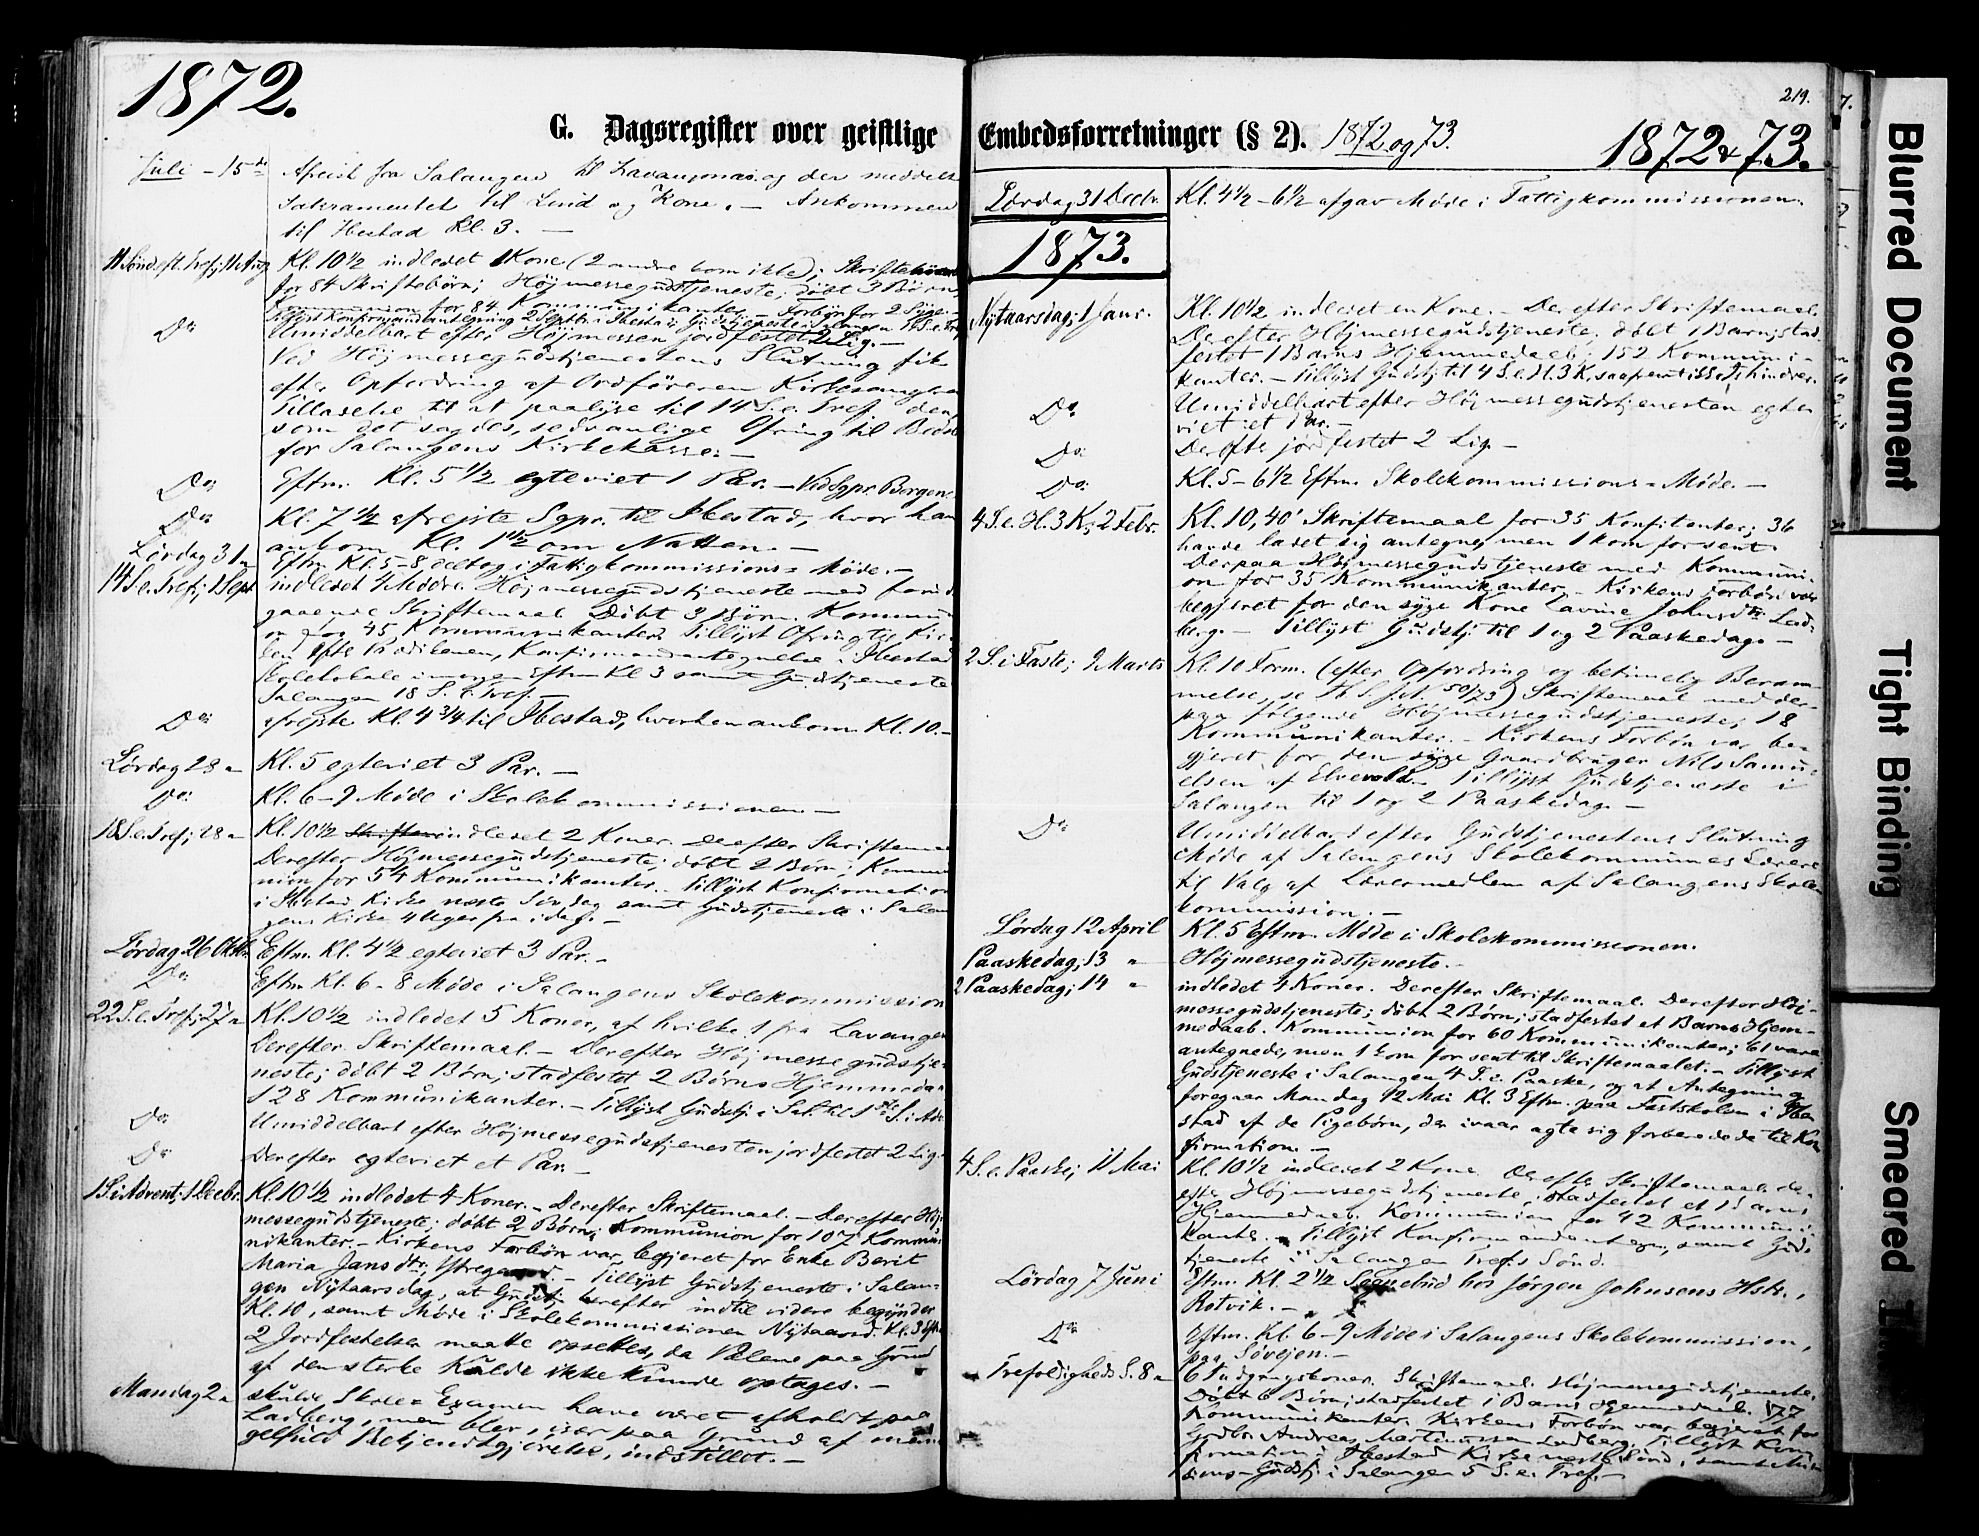 1872.
G. Dagsregister over geistlige
Juli – 15de Afreist fra Salangen til Lavangsnæs og der meddelt
Sakramentet til Lind og Kone. – Ankommen
til Ibestad Kl. 3. –
11 Sönd. eft. Tref; 11 Aug Kl. 10½ indledet 1 Kone (2 andre kom ikke); Skriftemaal
for 84 Skriftebörn; Höjmessegudstjeneste; döbt 3 Börn,
Kommunion for 84 Kommunikanter. – Forbön for 2 Syge. –
Tillyst Konfirmandantegning 2 Septbr. i Ibestad; Gudstjeneste i Salangen 14 S. e. Tref.
Do Umiddelbart efter Höjmessen jordfestet 2 Lig. –
Ved Höjmessegudstjenestens Slutning fik
efter Opfordring af Ordföreren Kirkesangeren
Tilladelse til at paalyse til 14 S. e. Tref. den,
som det sagdes, sedvanlige Ofring til Bedste
for Salangens Kirkekasse. –
Do Eftm. Kl. 5½ egteviet 1 Par. – Ved Sgpr. Bergen.
Do Kl. 7½ afrejste Sgpr. til Ibestad, hvor han
ankom Kl. 1½ om Natten. –
Lördag 31 " Eftm. Kl. 5–8 deltog i Fattigkommissions-Möde. –
14 S. e. Tref; 1 Sept indledet 4 Mödre. Höjmessegudstjeneste med forud-
gaaende Skriftemaal. Döbt 3 Börn. Kommuni-
on for 45 Kommunikanter. Tillyst Ofring til Kir-
ken efter Prædikenen, Konfirmandantegnelse i Ibestad
Skolelokale imorgen Eftm Kl 3 samt Gudstjeneste
Salangen 18 S. e. Tref. –
Do afrejste Kl. 4¾ til Ibestad, hvorhen ankom Kl. 10. –
Lördag 28 " Kl. 5 egteviet 3 Par. –
Do Kl. 6–9 Möde i Skolekommissionen. –
18 S. e. Tref; 28 " Kl. 10½ indledet 2 Koner. Derefter Skriftemaal
Derefter Höjmessegudstjeneste; döbt 2 Börn; Kommu-
nion for 54 Kommunikanter. Tillyst Konfirmation
i Ibestad Kirke næste Söndag samt Gudstjeneste i Salan-
gens Kirke 4 Uger fra idag. –
Lördag 26 Oktbr. Eftm. Kl. 4½ egteviet 3 Par. –
Do Eftm Kl. 6–8 Möde i Salangens Skolekommission
22 S. e. Tref; 27 " Kl. 10½ indledet 5 Koner, af hvilke 1 fra Lavangen
Derefter Skriftemaal. – Derefter Höjmessegudstje-
neste; döbt 2 Börn; stadfestet 2 Börns Hjemmedaab
128 Kommunikanter. – Tillyst Gudstj. i Sal. til 1ste S. i Adv.
Do Umiddelbart efter Höjmessegudstjenesten jordfestet 2 Lig.
Do Derefter egteviet et Par. –
1 S. i Advent; 1 Decbr. Kl. 10½ indledet 4 Koner. – Derefter Skriftemaal. – Derefter Höj-
messegudstjeneste; döbt 2 Börn; Kommunion for 107 Kommu-
nikanter. – Kirkens Forbön var begjeret for Enke Berit
Maria Jansdtr, – Tillyst Gudstjeneste i Salan-
gen Nytaarsdag, at Gudstj. herefter indtil videre begynder
Kl. 10, samt Möde i Skolekommissionen Nytaarsd. Kl. 3 Eftm
2 Jordfestelser maatte opsettes, da Pælene paa Grund
af den sterke Kulde ikke kunde optages. –
Mandag 2 " skulde Skole-Examen have været afholdt paa
Ladberg, men blev, især paa Grund af man-
gelfuld Bekjendtgjörelse, indstillet. –
219.
Embedsforretninger (§ 2). 1872 og 73. 1872 & 73.
Lördag 31 Decbr. Kl. 4½ – 6½ afgav Möde i Fattigkommissionen.
1873.
Nytaarsdag; 1 Janr. Kl. 10½ indledet en Kone. – Derefter Skriftemaal.
Derefter Höjmessegudstjeneste; döbt 1 Barn; stad-
festet 1 Barns Hjemmedaab; 152 Kommuni-
kanter. – Tillyst Gudstj til 4 S. e. H. 3 K, saafremt hindrer.
Do Umiddelbart efter Höjmessegudstjenesten egte-
viet et Par. –
Do Derefter jordfestet 2 Lig. –
Do Kl. 5–6½ Eftm. Skolekommissions-Möde. –
4 S. e. H. 3 K; 2 Febr. Kl. 10,40' Skriftemaal for 35 Konfitenter; 36
havde ladet sig antegne, men 1 kom for sent.
Derpaa Höjmessegudstjeneste med Kommuni-
on for 35 Kommunikanter. – Kirkens Forbön var
begjeret for den syge Kone Lavine Johnsdtr. Lad-
berg. – Tillyst Gudstj. til 1 og 2 Paaskedag. –
2 S. i Faste; 9 Marts Kl. 10 Form. (efter Opfordring og betimelig Beram-
melse, se 50/73) Skriftemaal med der-
paa fölgende Höjmessegudstjeneste; 18
Kommunikanter. – Kirkens Forbön var be-
gjeret for den syge Gaardbruger Nils Samu-
elsen af Elvevold. – Tillyst Gudstjeneste i
Salangen til 1 og 2 Paaskedag. –
Do Umiddelbart efter Gudstjenestens Slutning
Möde af Salangens Skolekommunes Lærere
til Valg af Lærermedlem af Salangens Skole-
kommission. –
Lördag 12 April Kl. 5 Eftm. Möde i Skolekommissionen.
Paaskedag; 13 " Höjmessegudstjeneste. –
2 Paaskedag; 14 " indledet 4 Koner. Derefter Skriftemaal. Derefter Höj-
messegudstjeneste; döbt 2 Börn; stadfestet et Barns Hjem-
medaab. Kommunion for 60 Kommunikanter; 61 vare
antegnede, men 1 kom for sent til Skriftemaalet. – Tillyst
Gudstjeneste i Salangen 4 S. e. Paaske, og at Antegning
foregaar Mandag 12 Mai Kl. 3 Eftm. paa Fastskolen i Ibe-
stad af de Pigebörn, der ivaar agte sig forberedede til Kon-
firmation. –
4 S. e. Paaske; 11 Mai Kl. 10½ indledet 2 Kone. Derefter Skriftemaal; der-
efter Höjmessegudstjeneste; stadfestet et Barns
Hjemmedaab. Kommunion for 42 Kommuni-
kanter. – Tillyst samt Guds-
tjeneste i Salangen Trefs Sönd.
Lördag 7 Juni Eftm. Kl. 2½ Sognebud hos Jörgen Johnsens Hstr.,
Rotvik. –
Do Eftm. Kl. 6–9 Möde i Salangens Skolekommission,
paa Sövejen. –
Trefoldigheds S. 8 " 6 Udgangskoner. Skriftemaal. Höjmessegudstjeneste.
Döbt 6 Börn; stadfestet 1 Barns Hjemmedaab. 177
Kommunikanter. Kirkens Forbön var begjeret for
Grdbr. Andreas Martinussen Ladberg. Tillyst Kon-
firmation i Ibestad Kirke neste Sönd., samt Mis-
sions-Gudstj. i Salangen 5 S. e. Tref. –
Blurred Document
Tight Binding
Smeared